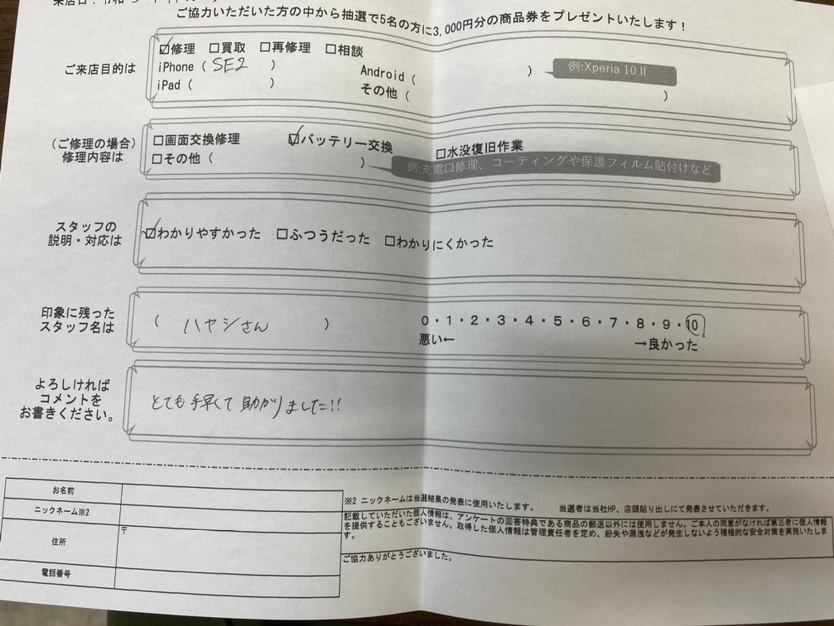 ご協力いただいた方の中から抽選で5名の方に3,000円分の商品券をプレゼントいたします！
ご来店目的は
☑修理 □買取 □再修理 □相談
iPhone（SE2 ） Android（ ） 例:Xperia 10 II
iPad（ ） その他（ ）
（ご修理の場合）
修理内容は
□画面交換修理 ☑バッテリー交換 □水没復旧作業
□その他（ ） 例:充電口修理、コーティングや保護フィルム貼付けなど
スタッフの
説明・対応は
☑わかりやすかった □ふつうだった □わかりにくかった
印象に残った
スタッフ名は
（ ハヤシさん ） 0・1・2・3・4・5・6・7・8・9・10
悪い← →良かった
よろしければ
コメントを
お書きください。
とても手早くて助かりました!!
お名前
ニックネーム※2
住所 〒
電話番号
※2 ニックネームは当選結果の発表に使用いたします。 当選者は当社HP、店頭貼り出しにて発表させていただきます。
記載していただいた個人情報は、アンケートの回答特典である商品の郵送以外には使用しません。ご本人の同意がなければ第三者に個人情報
を提供することもございません。取得した個人情報は管理責任者を定め、紛失や漏洩などが発生しないよう積極的な安全対策を実施いたしま
す。
ご協力ありがとうございました。